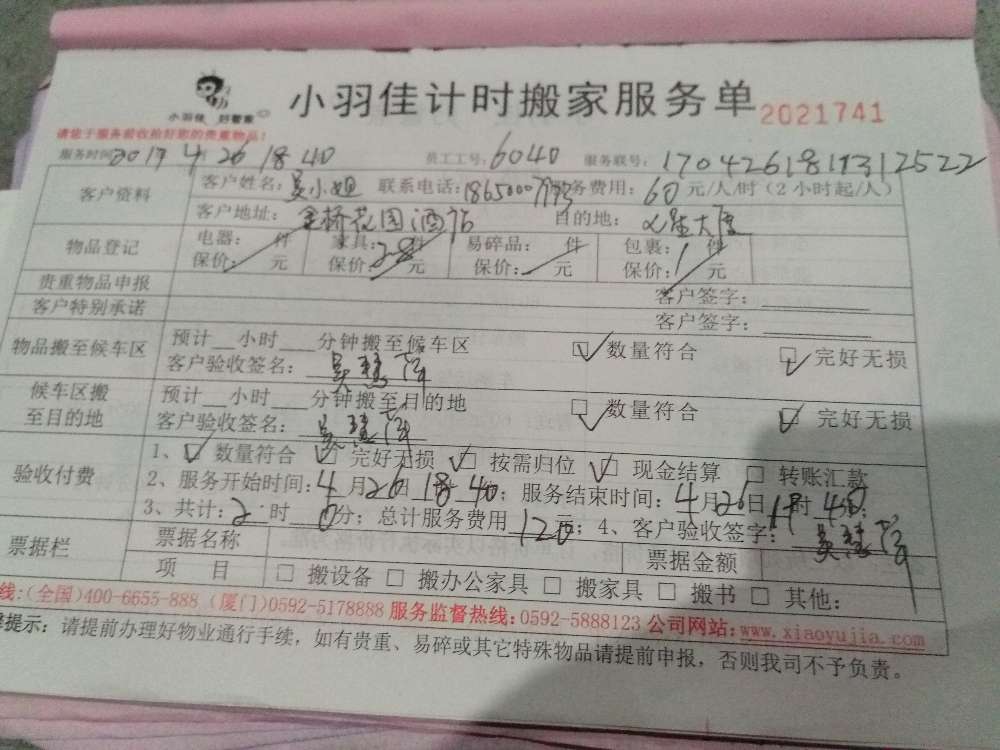 小羽佳 好管家
小羽佳计时搬家服务单 2021741
请徒于服务前收拾好您的贵重物品！
服务时间：2017 4月 26 18 40 员工工号：6040 服务联号：170426181131252​2
客户资料 客户姓名：吴小姐 联系电话：1865000 务费用：60元/人/时（2小时起/人）
客户地址：金桥花园酒店 目的地：大厦
物品登记 电器： 件 家具：28件 易碎品： 件 包裹：1件
保价： 元 保价： 元 保价： 元 保价： 元
贵重物品申报 客户签字：
客户特别承诺 客户签字：
物品搬至候车区 预计__小时___分钟搬至候车区 数量符合 完好无损
客户验收签名：吴慧萍
候车区搬至目的地 预计__小时___分钟搬至目的地 数量符合 完好无损
客户验收签名：吴慧萍
验收付费 1、数量符合 完好无损 按需归位 现金结算 转账汇款
2、服务开始时间：4月26日18 40；服务结束时间：4月26日 时 40
3、共计：2时0分；总计服务费用 120元；4、客户验收签字：吴慧萍
票据栏 票据名称 票据金额
项 目 搬设备 搬办公家具 搬家具 搬书 其他：
线：(全国)400-6655-888 (厦门)0592-5178888 服务监督热线：0592-5888123 公司网站：www.xiaoyujia.com
提示：请提前办理好物业通行手续，如有贵重、易碎或其它特殊物品请提前申报，否则我司不予负责。